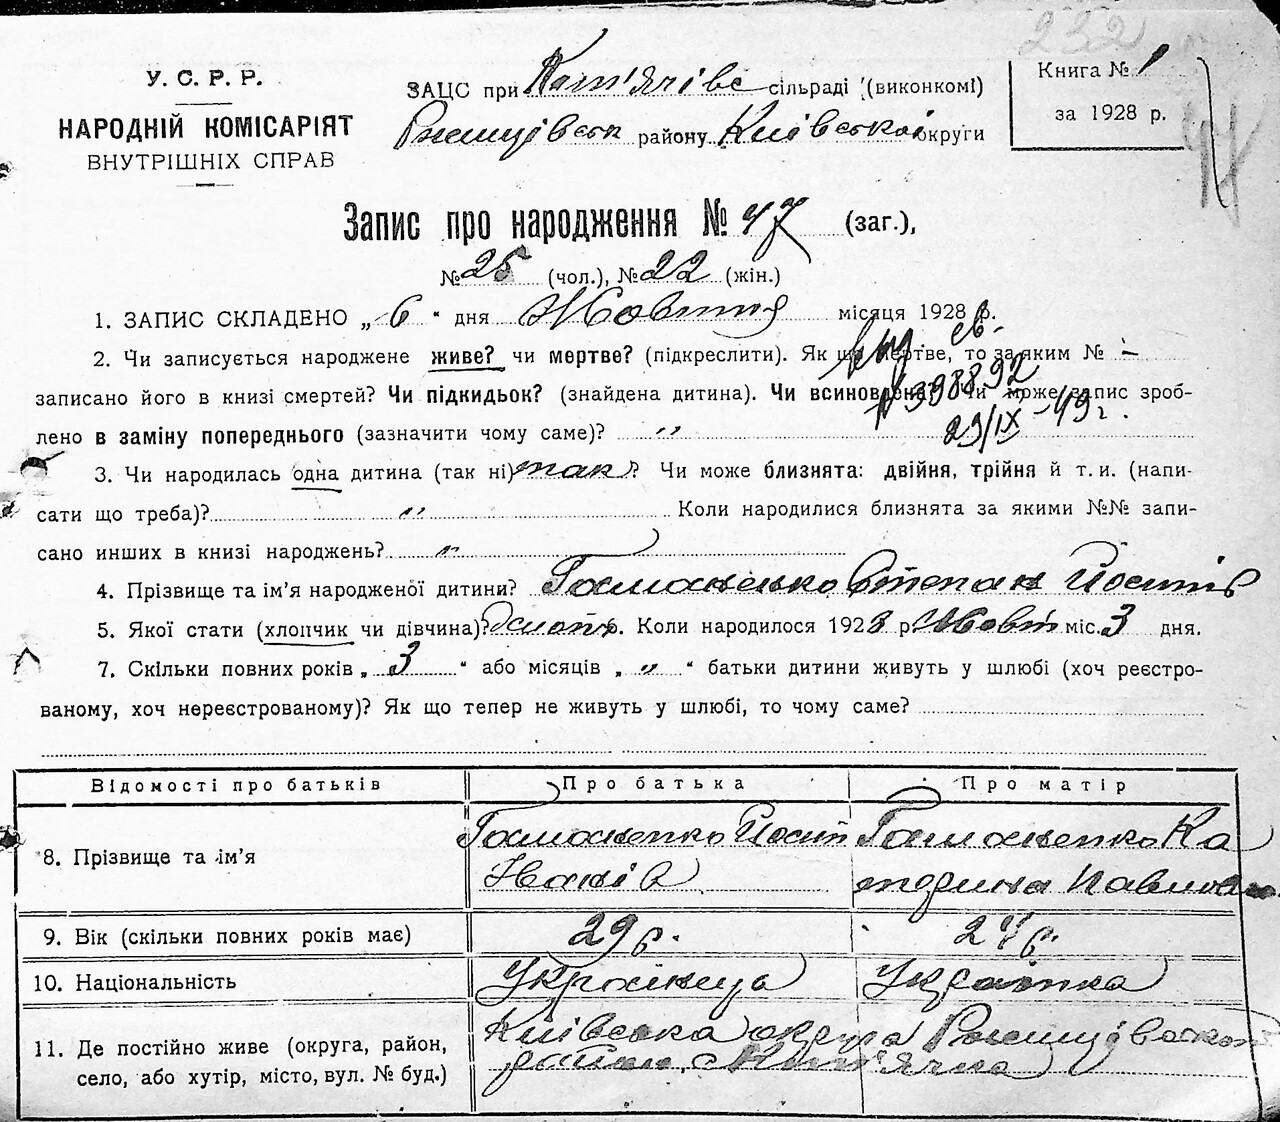 232
У. С. Р. Р.
НАРОДНІЙ КОМІСАРІЯТ
ВНУТРІШНІХ СПРАВ
ЗАЦС при сільраді (виконкомі)
району Київської округи
Книга № 1
за 1928 р.
47
Запис про народження № 47 (заг.),
№ 25 (чол.), № 22 (жін.)
1. ЗАПИС СКЛАДЕНО „ 6 “ дня Жовтня місяця 1928 р.
2. Чи записується народжене живе? чи мертве? (підкреслити). Як що мертве, то за яким № –
записано його в книзі смертей? Чи підкидьок? (знайдена дитина). Чи всиновлена? Чи може запис зроб-
лено в заміну попереднього (зазначити чому саме)? "
№ 398892
29/IX – 49 г.
3. Чи народилась одна дитина (так ні) так? Чи може близнята: двійня, трійня й т. и. (напи-
сати що треба)? " Коли народилися близнята за якими №№ запи-
сано инших в книзі народжень? "
4. Прізвище та ім’я народженої дитини? Гаманенко Степан Йосипів
5. Якої стати (хлопчик чи дівчина)? Коли народилося 1928 р. Жовт міс. 3 дня.
7. Скільки повних років „ 3 “ або місяців „ " “ батьки дитини живуть у шлюбі (хоч реєстро-
ваному, хоч нереєстрованому)? Як що тепер не живуть у шлюбі, то чому саме?
Відомості про батьків Про батька Про матір
8. Прізвище та ім’я Гаманенко Йосип Іванів Гаманенко Катерина
9. Вік (скільки повних років має) 29 р. 24 р.
10. Національність Українець Українка
11. Де постійно живе (округа, район, Київська округа
село, або хутір, місто, вул. № буд.) район